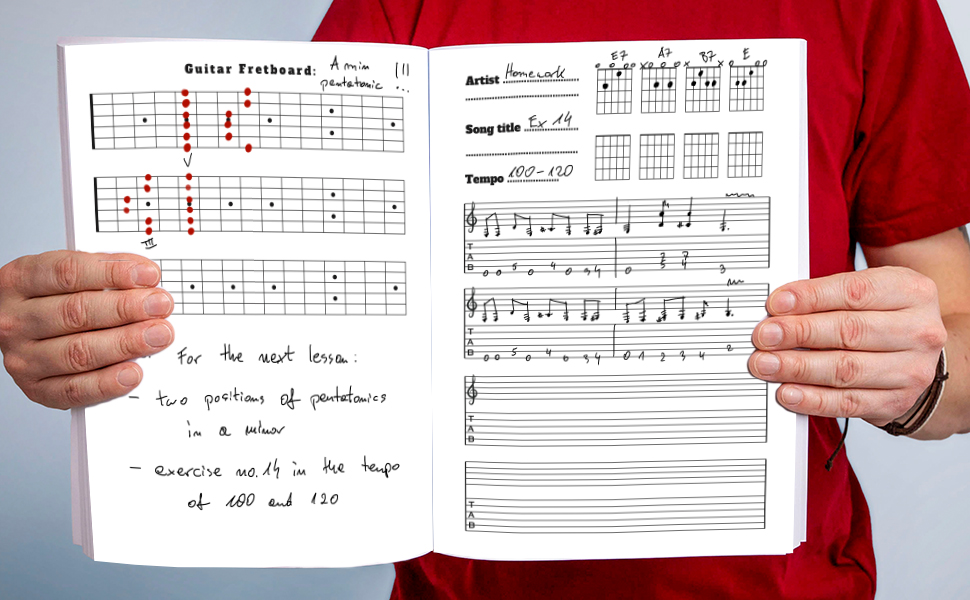 Guitar Fretboard: A min
pentatonic
V
III
For the next lesson:
- two positions of pentatonics
in a minor
- exercise no. 14 in the tempo
of 100 and 120
Artist Homework
Song title Ex 14
Tempo 100-120
E7 A7 B7 E
x o x o o
T
A
B
0 0 5 0 4 0 3 4 0 3
T
A
B
0 0 5 0 4 0 3 4 0 1 2 3 4 2
T
A
B
T
A
B